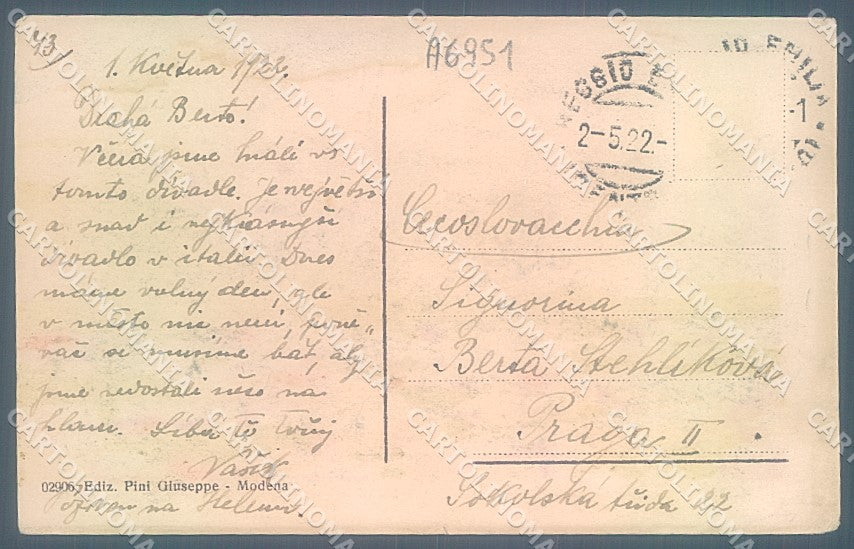 43)
A6951
1. Května 1922.
Drahá Berto!
Včera jsme hráli v
tomto divadle. Je největší
a snad i nejkrásnější
divadlo v italii. Dnes
máme volný den, ale
v město nic není, poně„
vač se musíme bát, aby
jsme nedostali něco na
hlavu. Líbá Tě Tvůj
Vašík
Pozdrav na Helenu.
02906. Ediz. Pini Giuseppe - Modena
REGGIO EMILIA
2-5.22.-
Cecoslovacchia
Signorina
Berta Stehlíková
Praga II.
Sokolská třída 22
CARTOLINOMANIA